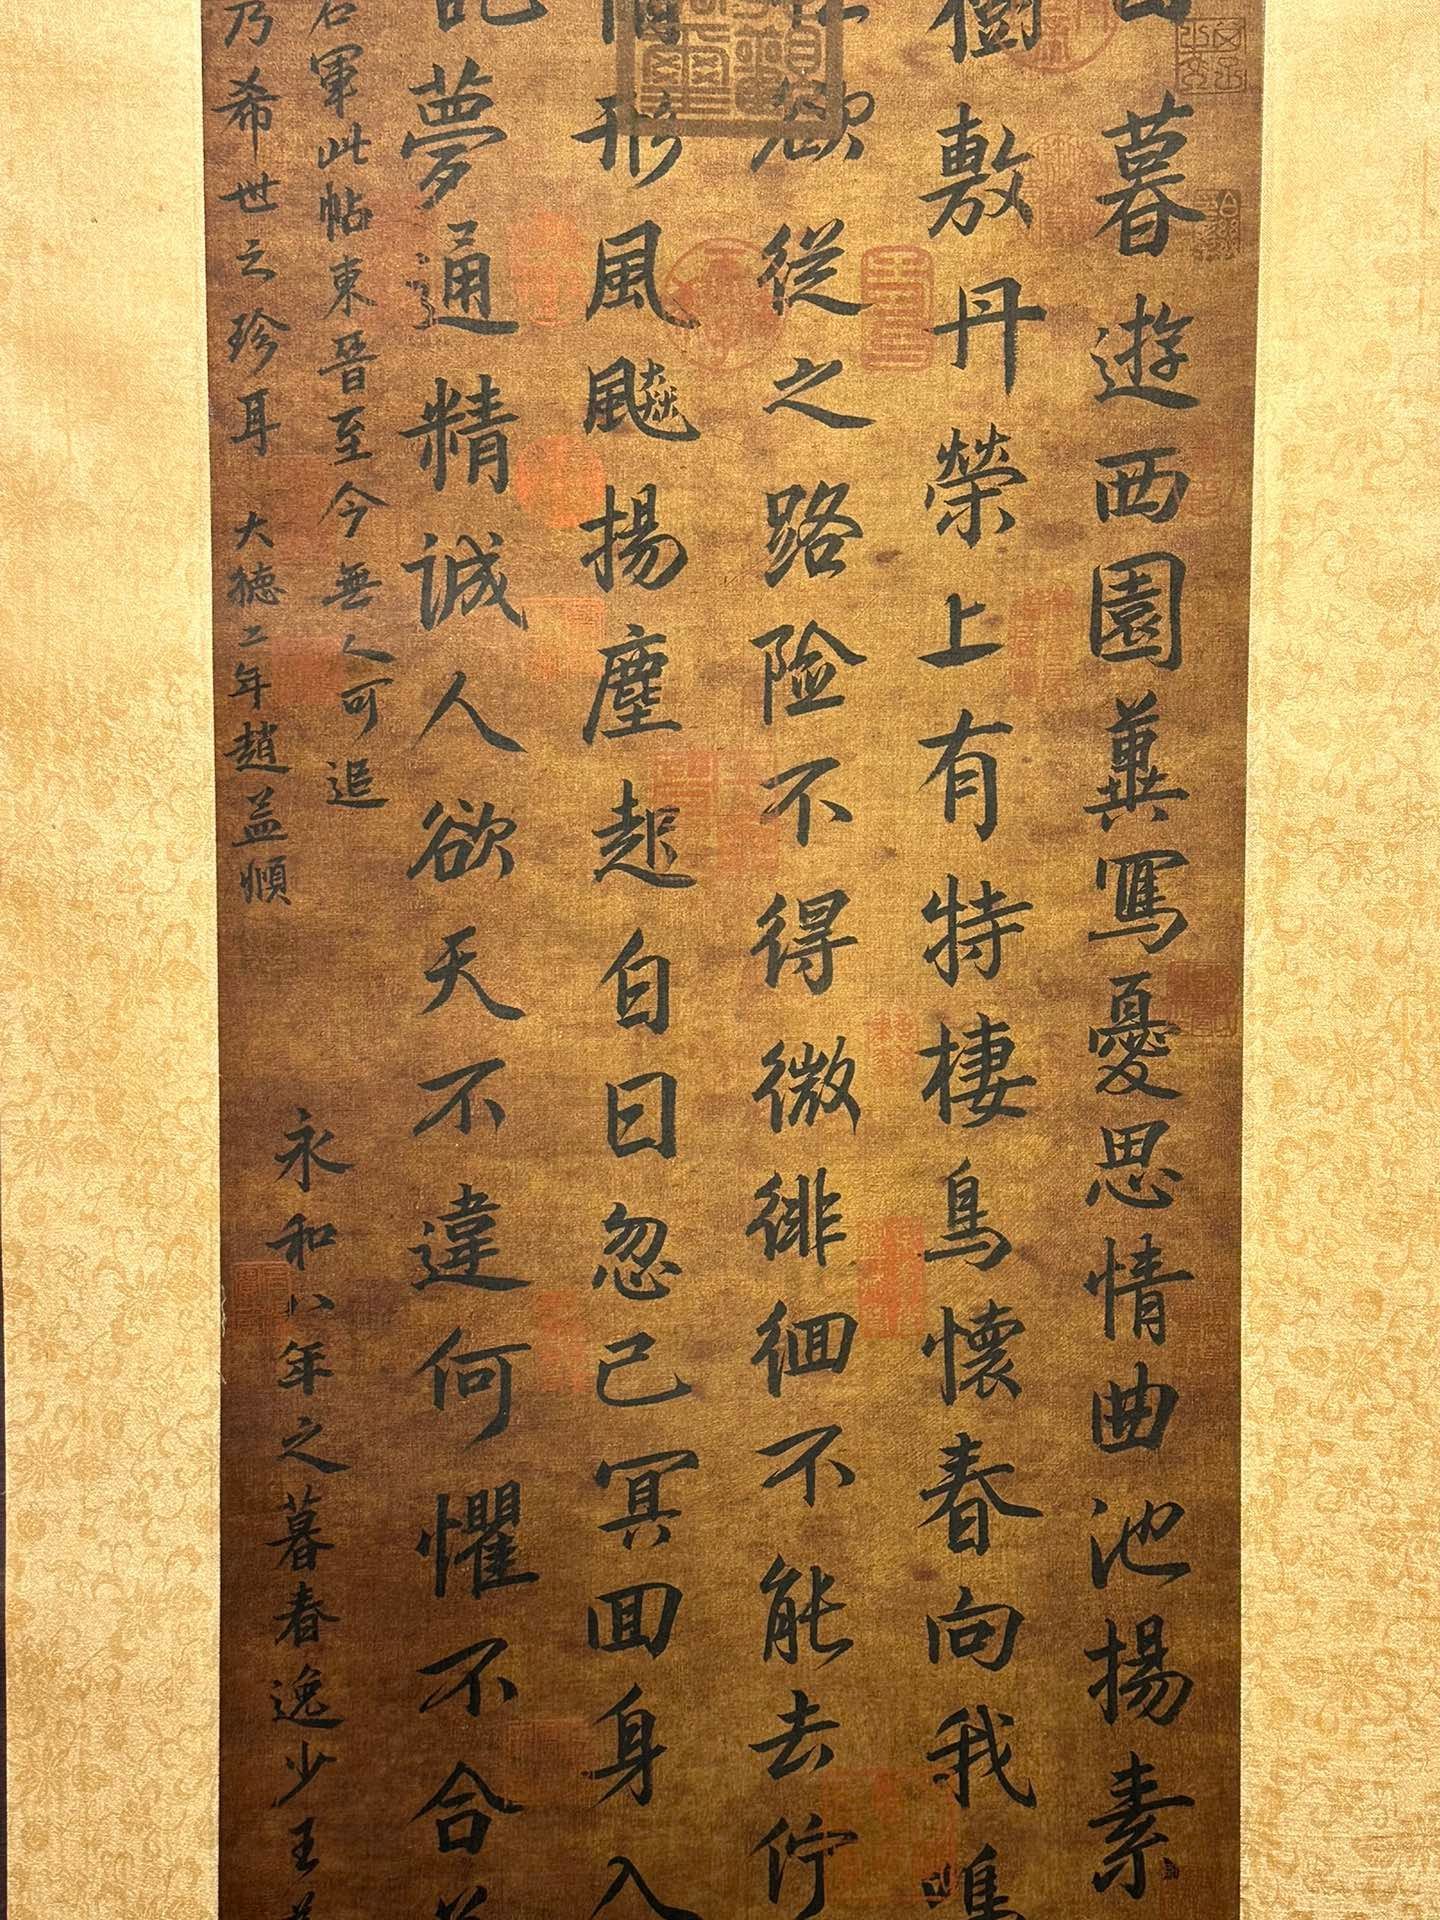 暮遊西園冀寫憂思情曲池揚素
樹敷丹榮上有特棲鳥懷春向我鳴
欲從之路险不得微徘徊不能去佇
形風飈揚塵起自曰忽已冥回身入
夢通精誠人欲天不違何懼不合
右軍此帖東晉至今無人可追
乃希世之珍耳 大德二年趙孟頫
永和八年之暮春逸少王